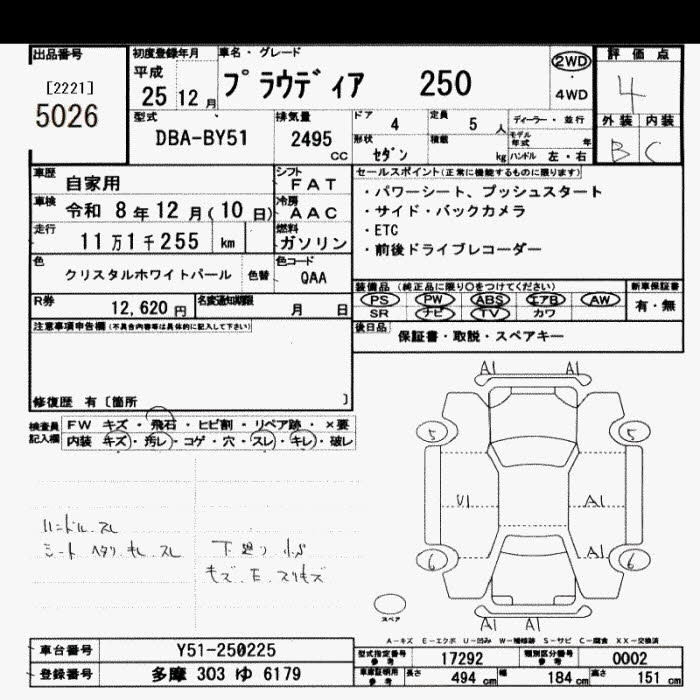 出品番号
[2221]
5026
初度登録年月
平成
25 12 月
車名・グレード
プラウディア 250
2WD
・
4WD
評価点
4
型式
DBA-BY51
排気量
2495
CC
ドア 4
定員 5 人
形状 セダン
積載 kg
ディーラー・並行
モデル年式 年
ハンドル 左・右
外装 内装
B C
車歴 自家用
車検 令和 8 年 12 月 ( 10 日)
走行 11 万 1 千 255 km
色 クリスタルホワイトパール 色替
シフト FAT
冷房 AAC
燃料 ガソリン
色コード QAA
R券 12,620 円
名変通知期限 月 日
セールスポイント(正常に機能するものに限ります)
・パワーシート、プッシュスタート
・サイド・バックカメラ
・ETC
・前後ドライブレコーダー
装備品 (純正品に限り○をつけてください)
PS PW ABS エアB AW
SR ナビ TV カワ
新車保証書
有・無
後日品 保証書・取説・スペアキー
注意事項申告欄(不具合内容等は具体的に記入して下さい)
修復歴 有〔箇所 〕
検査員記入欄
FW キズ・飛石・ヒビ割・リペア跡・×要
内装 キズ・汚レ・コゲ・穴・スレ・キレ・破レ
ハンドル.スレ
シート ヘタリ.キレ.スレ
下廻り 小サビ
キズ.E.スリキズ
A1 A1
5 5
U1 A1
A1
6 6
A1 A1
スペア
A-キズ E-エクボ U-凹み W-補修跡 S-サビ C-腐食 XX-交換済
車台番号 Y51-250225
登録番号 多摩 303 ゆ 6179
型式指定番号 参考 17292
類別区分番号 参考 0002
車庫証明用 参考 長さ 494 cm 幅 184 cm 高さ 151 cm